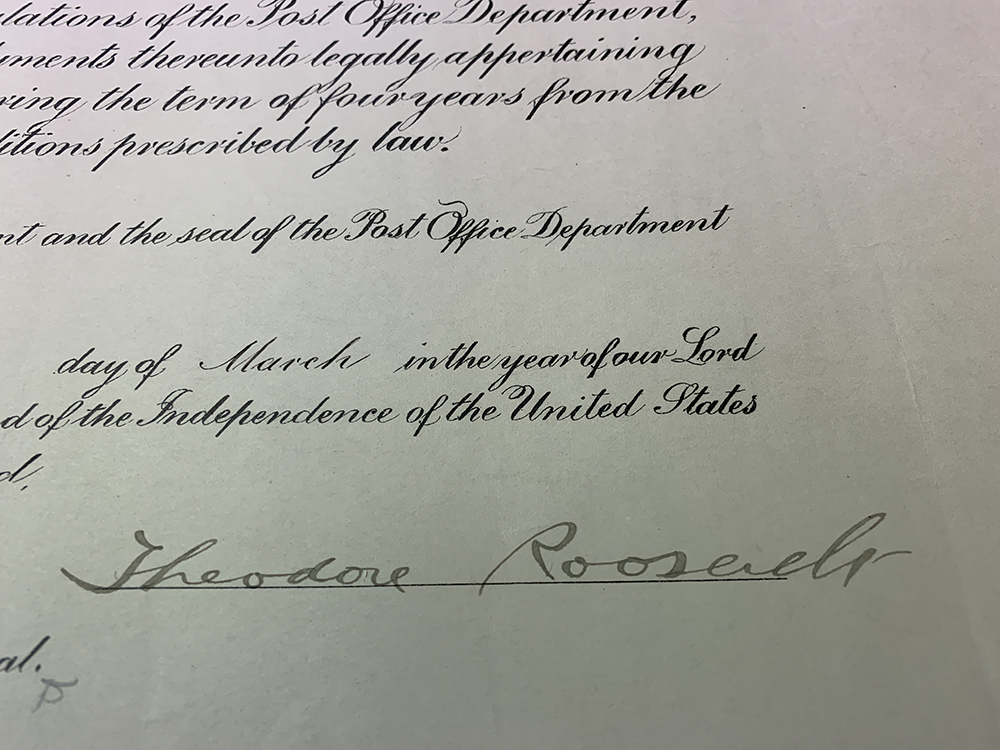 lations of the Post Office Department,
ments thereunto legally appertaining
ring the term of four years from the
ditions prescribed by law.
nt and the seal of the Post Office Department
day of March in the year of our Lord
d of the Independence of the United States
d.
Theodore Roosevelt
al.